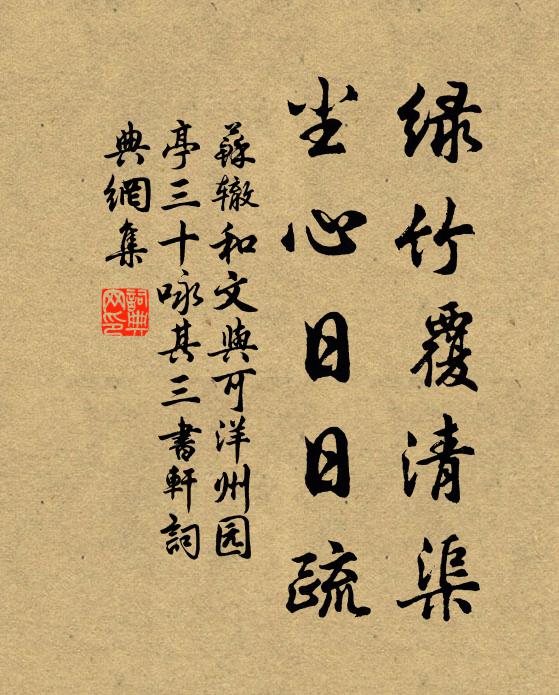 绿竹覆清渠
尘心日日疏
蘇辙和文與可洋州园
亭三十咏其三書軒詞
典網集
詞典
网印